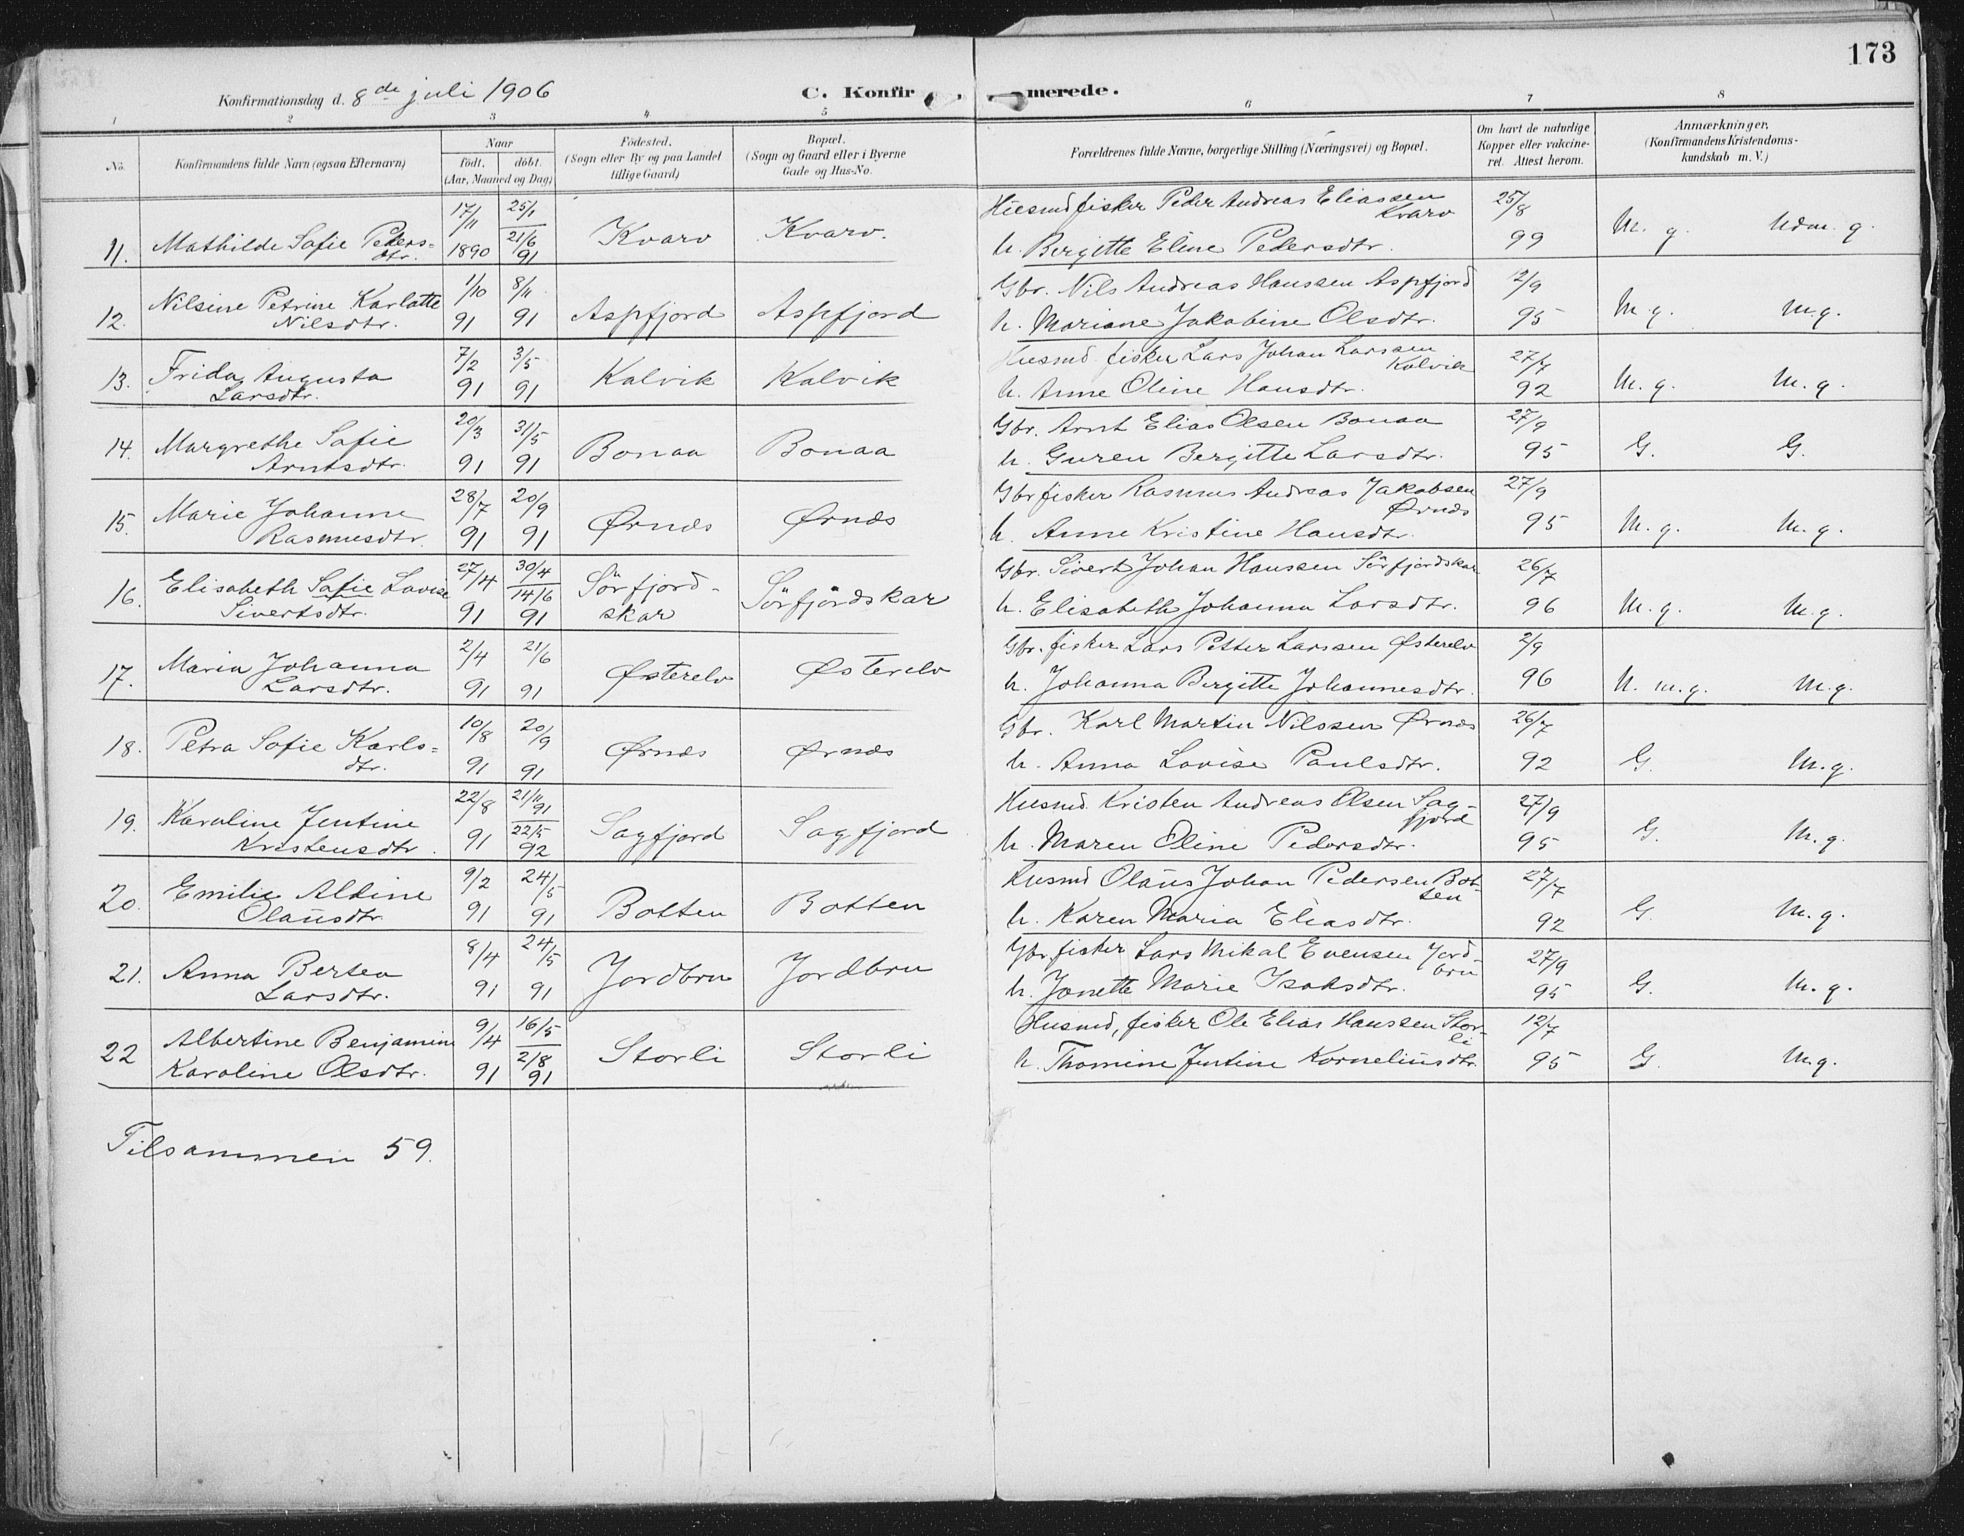 173
Konfirmationsdag d. 8de juli 1906 C. Konfirmerede.
1 2 3 4 5 6 7 8
No. Konfirmandens fulde Navn (ogsaa Efternavn) Naar født, døbt. (Aar, Maaned og Dag) Fødested. (Sogn eller By og paa Landet tillige Gaard) Bopæl. (Sogn og Gaard eller i Byerne Gade og Hus-No. Forældrenes fulde Navne, borgerlige Stilling (Næringsvei) og Bopæl. Om havt de naturlige Kopper eller vakcineret. Attest herom. Anmærkninger. (Konfirmandens Kristendomskundskab m. V.)
17/11 25/1 Husmd fisker Peder Andreas Eliassen Kvarv 25/8
11. Mathilde Sofie Pedersdtr. 1890 21/6 91 Kvarv Kvarv. h. Bergitte Eline Pedersdtr. 99 M. g. Udm. g.
Nilsine Petrine Karlatte 1/10 8/11 Gbr. Nils Andreas Hanssen Aspfjord 2/9
12. Nilsdtr. 91 91 Aspfjord Aspfjord h. Mariane Jakobine Olsdtr. 95 M. g. M. g.
Frida Augusta 7/2 3/5 Husmd fisker Lars Johan Larssen Kalvik 27/7
13. Larsdtr. 91 91 Kalvik Kalvik h. Anne Oline Hansdtr. 92 M. g. M. g.
Margrethe Sofie 20/3 31/5 Gbr. Arnt Elias Olsen Bonaa 27/9
14. Arntsdtr. 91 91 Bonaa Bonaa h. Guren Bergitte Larsdtr. 95 G. G.
Marie Johanne 28/7 20/9 Gbr fisker Rasmus Andreas Jakobsen Ørnes 27/9
15. Rasmusdtr. 91 91 Ørnes Ørnes h. Anne Kristine Hansdtr. 95 M. g. M. g.
Elisabeth Sofie Lovise 27/4 30/4 Sörfjord- Gbr. Sivert Johan Hanssen Sörfjordskar 26/7
16. Sivertsdtr. 91 14/6 91 skar Sörfjordskar h. Elisabeth Johanna Larsdtr. 96 M. g. M. g.
Maria Johanna 2/4 21/6 Gbr. fisker Lars Petter Larssen Østerelv 2/9
17. Larsdtr. 91 91 Østerelv Østerelv h. Johanna Bergitte Johannesdtr. 96 N. m. g. M. g.
Petra Sofie Karls= 10/8 20/9 Gbr. Karl Martin Nilssen Ørnes 26/7
18. dtr. 91 91 Ørnes Ørnes h. Anna Lovise Paulsdtr. 92 G. M. g.
Karoline Jentine 22/8 21/11 91 Husmd. Kristen Andreas Olsen Sagfjord 27/9
19. Kristensdtr. 91 22/5 92 Sagfjord Sagfjord h. Maren Oline Pedersdtr. 95 G. M. g.
Emilie Aldine 9/2 24/5 Husmd Olaüs Johan Pedersen Botten 27/7
20. Olaüsdtr. 91 91 Botten Botten h. Karen Maria Eliasdtr. 92 G. M. g.
Anna Bertea 8/4 24/5 Gbr. fisker Lars Mikal Evensen Jordbru 27/9
21. Larsdtr. 91 91 Jordbru Jordbru h. Jonette Marie Isaksdtr. 95 G. M. g.
Albertine Benjamine 9/4 16/5 Husmd, fisker Ole Elias Hanssen Storli 12/7
22 Karoline Olsdtr. 91 2/8 91 Storli Storli h. Thomine Jentine Korneliüsdtr. 95 G. M. g.
Tilsammen 59.